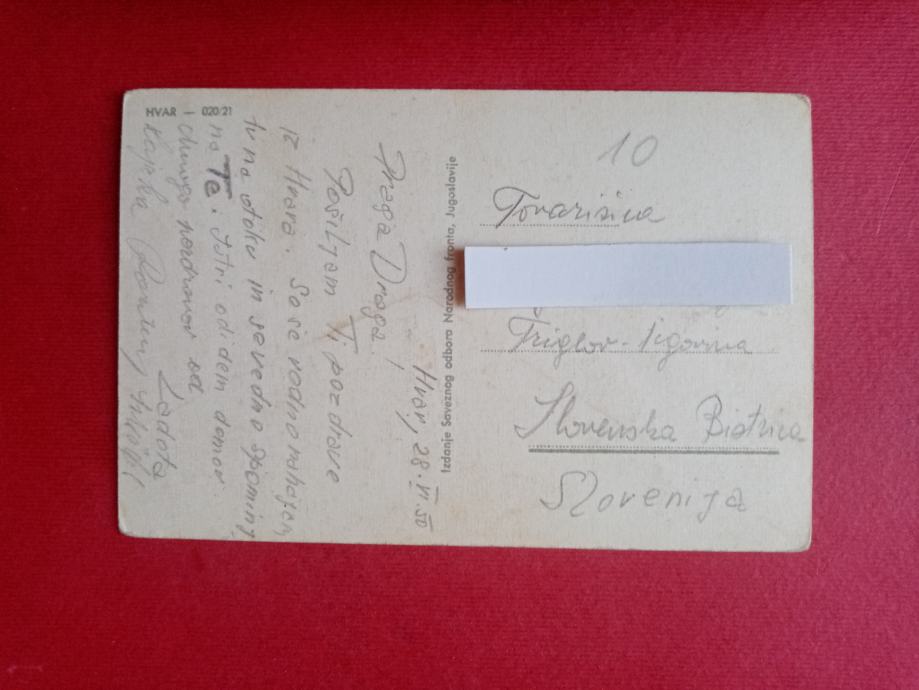 HVAR — 020/21
Hvar, 28. VI. 50
Draga Draga!
Pošiljam Ti pozdrave
iz Hvara. Še se vedno nahajam
tu na otoku in se vedno spominj
na Te. Jutri odidem domov.
Mnogo pozdravov od
Ladota
Izdanje Saveznog odbora Narodnog fronta, Jugoslavije
10
Tovarišica
Triglov - trgovina
Slovenska Bistrica
Slovenija